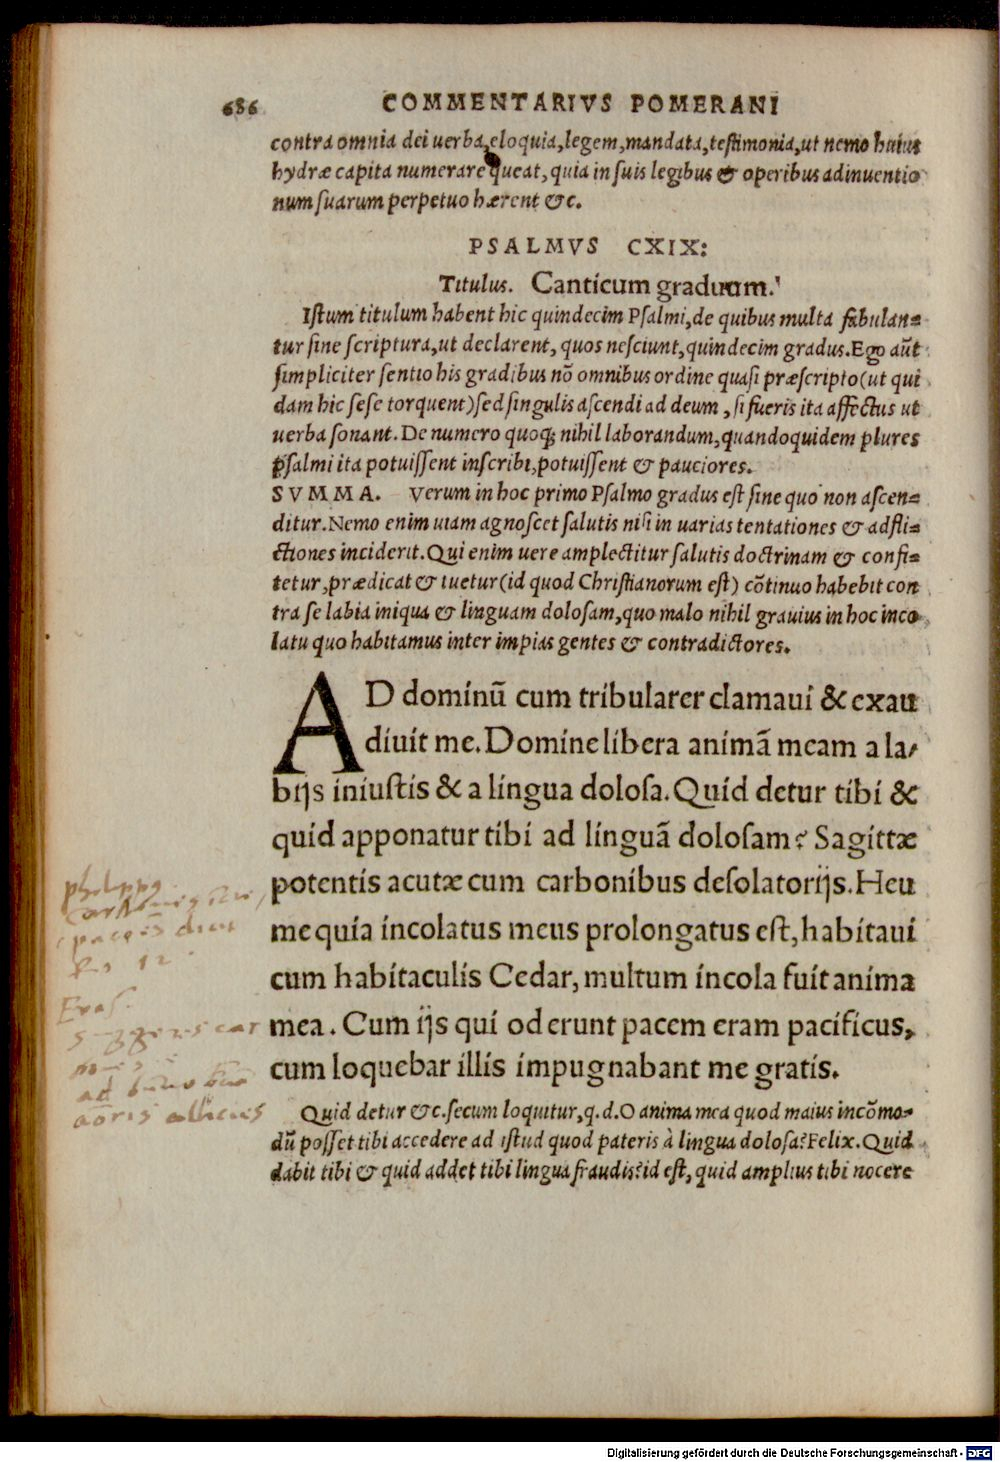 686 COMMENTARIVS POMERANI
contra omnia dei uerba, eloquia, legem, mandata, testimonia, ut nemo huius
hydræ capita numerare queat, quia in suis legibus & operibus adinuentio
num suarum perpetuo hærent &c.
PSALMVS CXIX:
Titulus. Canticum graduum.
Istum titulum habent hic quindecim Psalmi, de quibus multa fabulan=
tur sine scriptura, ut declarent, quos nesciunt, quindecim gradus. Ego aũt
simpliciter sentio his gradibus nõ omnibus ordine quasi præscripto (ut qui
dam hic sese torquent) sed singulis ascendi ad deum, si fueris ita affectus ut
uerba sonant. De numero quoqꝫ nihil laborandum, quandoquidem plures
psalmi ita potuissent inscribi, potuissent & pauciores.
SVMMA. Verum in hoc primo Psalmo gradus est sine quo non ascen=
ditur. Nemo enim uiam agnoscet salutis nisi in uarias tentationes & adfli=
ctiones inciderit. Qui enim uere amplectitur salutis doctrinam & confi=
tetur, prædicat & tuetur (id quod Christianorum est) cõtinuo habebit con
tra se labia iniqua & linguam dolosam, quo malo nihil grauius in hoc inco
latu quo habitamus inter impias gentes & contradictores.
AD dominũ cum tribularer clamaui & exau
diuit me. Domine libera animã meam a la/
bijs iniustis & a lingua dolosa. Quid detur tibi &
quid apponatur tibi ad linguã dolosam? Sagittæ
potentis acutæ cum carbonibus desolatorijs. Heu
me quia incolatus meus prolongatus est, habitaui
cum habitaculis Cedar, multum incola fuit anima
mea. Cum ijs qui oderunt pacem eram pacificus,
cum loquebar illis impugnabant me gratis.
Quid detur &c. secum loquitur, q.d. O anima mea quod maius incõmo=
dũ posset tibi accedere ad istud quod pateris à lingua dolosa? Felix. Quid
dabit tibi & quid addet tibi lingua fraudis? id est, quid amplius tibi nocere
Eras.
Digitalisierung gefördert durch die Deutsche Forschungsgemeinschaft - DFG